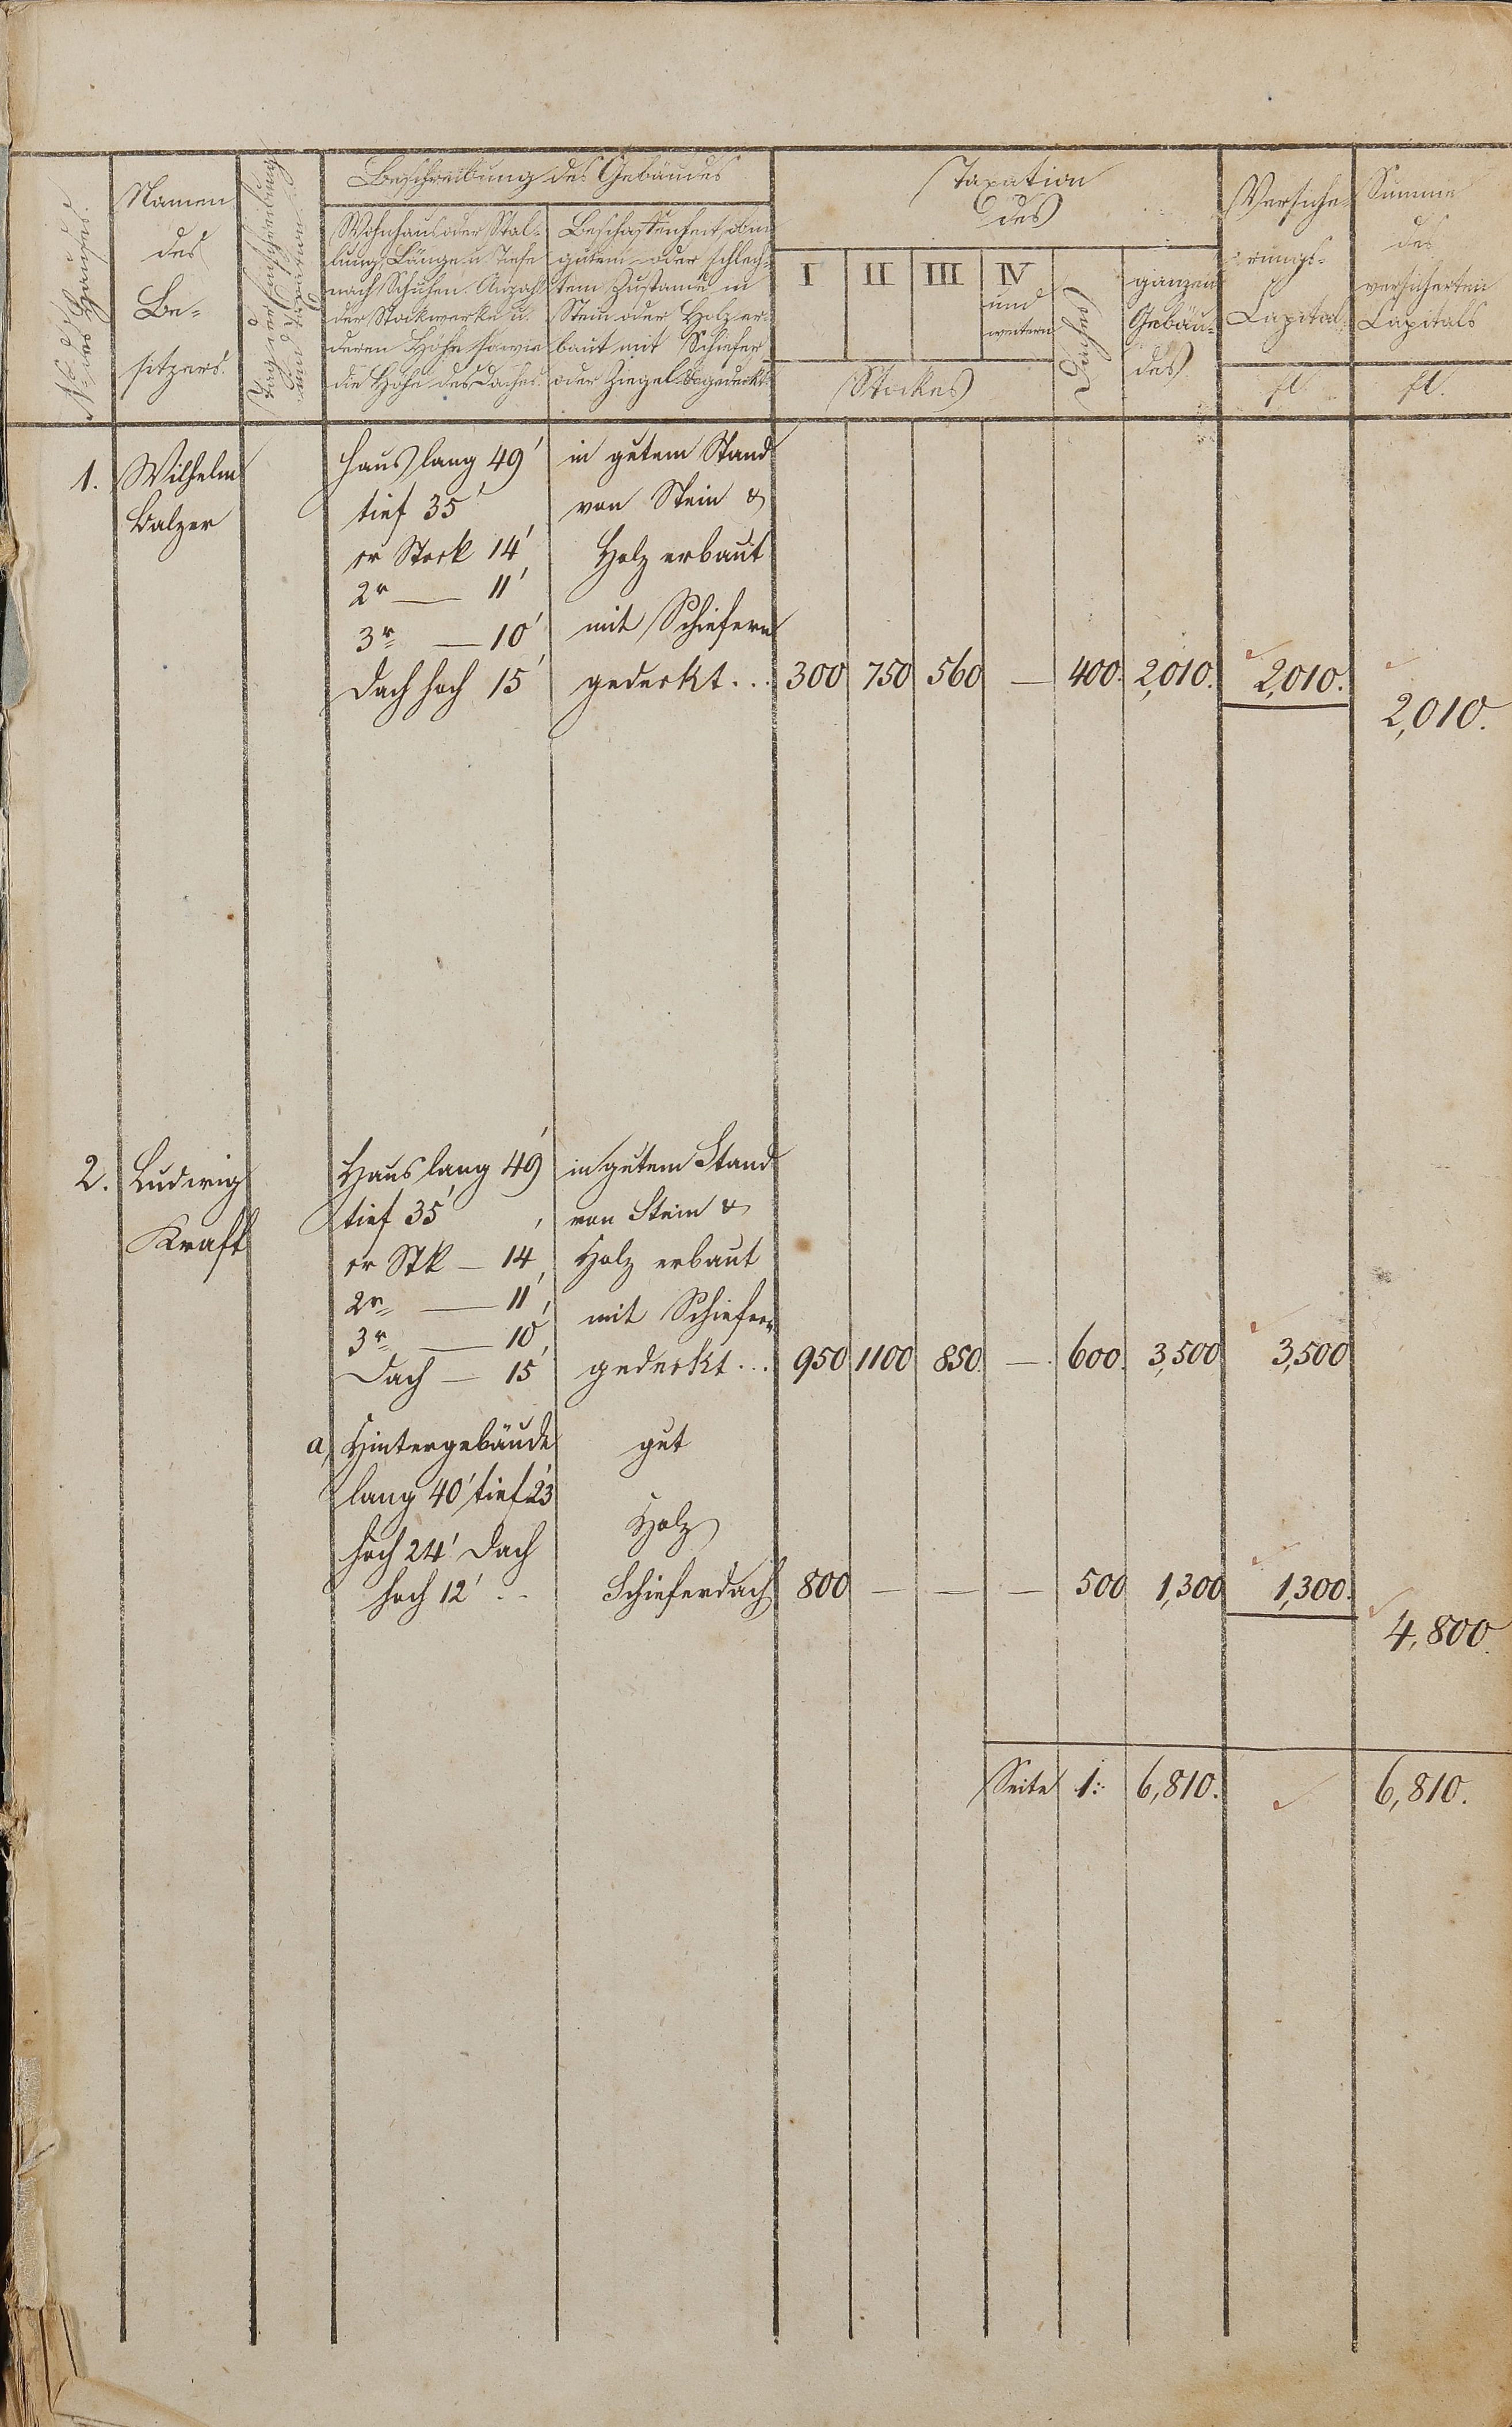 No des Hauses.
Namen
des
Be-
sitzers.
Tag der Einschreibung
und
Beschreibung des Gebäudes
Wohnhaus oder Stal-
lung, Länge u. Tiefe
nach Schuhen. Anzahl
der Stockwerke u.
deren Höhe sowie
die Höhe des Daches.
Beschaffenheit, ob in
gutem oder schlech-
tem Zustande in
Stein oder Holz er-
baut mit Schiefer
oder Ziegel gedeckt.
Taxation
des
I II III IV
und
weitern
Stockes
Daches
ganzen
Gebäu-
des
Versiche-
rungs-
Capital
fl.
Summe
des
versicherten
Capitals
fl.
1. Wilhelm
Balzer
Haus lang 49'
tief 35'
er Stock 14'
2r — 11'
3r — 10'
Dach hoch 15'
in gutem Stand
von Stein &
Holz erbaut
mit Schiefern
gedeckt... 300 750 560 — 400. 2,010. 2,010.
2,010.
2. Ludwig
Kraft
Haus lang 49'
tief 35'
er Stk — 14'
2r — 11'
3r — 10'
Dach — 15'
in gutem Stand
von Stein &
Holz erbaut
mit Schiefern
gedeckt... 950 1100 850. — 600. 3,500 3,500
a, Hintergebäude
lang 40' tief 23'
hoch 24' Dach
hoch 12' ..
gut
Holz
Schieferdach 800 — — — 500 1,300 1,300.
4,800.
Seite 1: 6,810. 6,810.